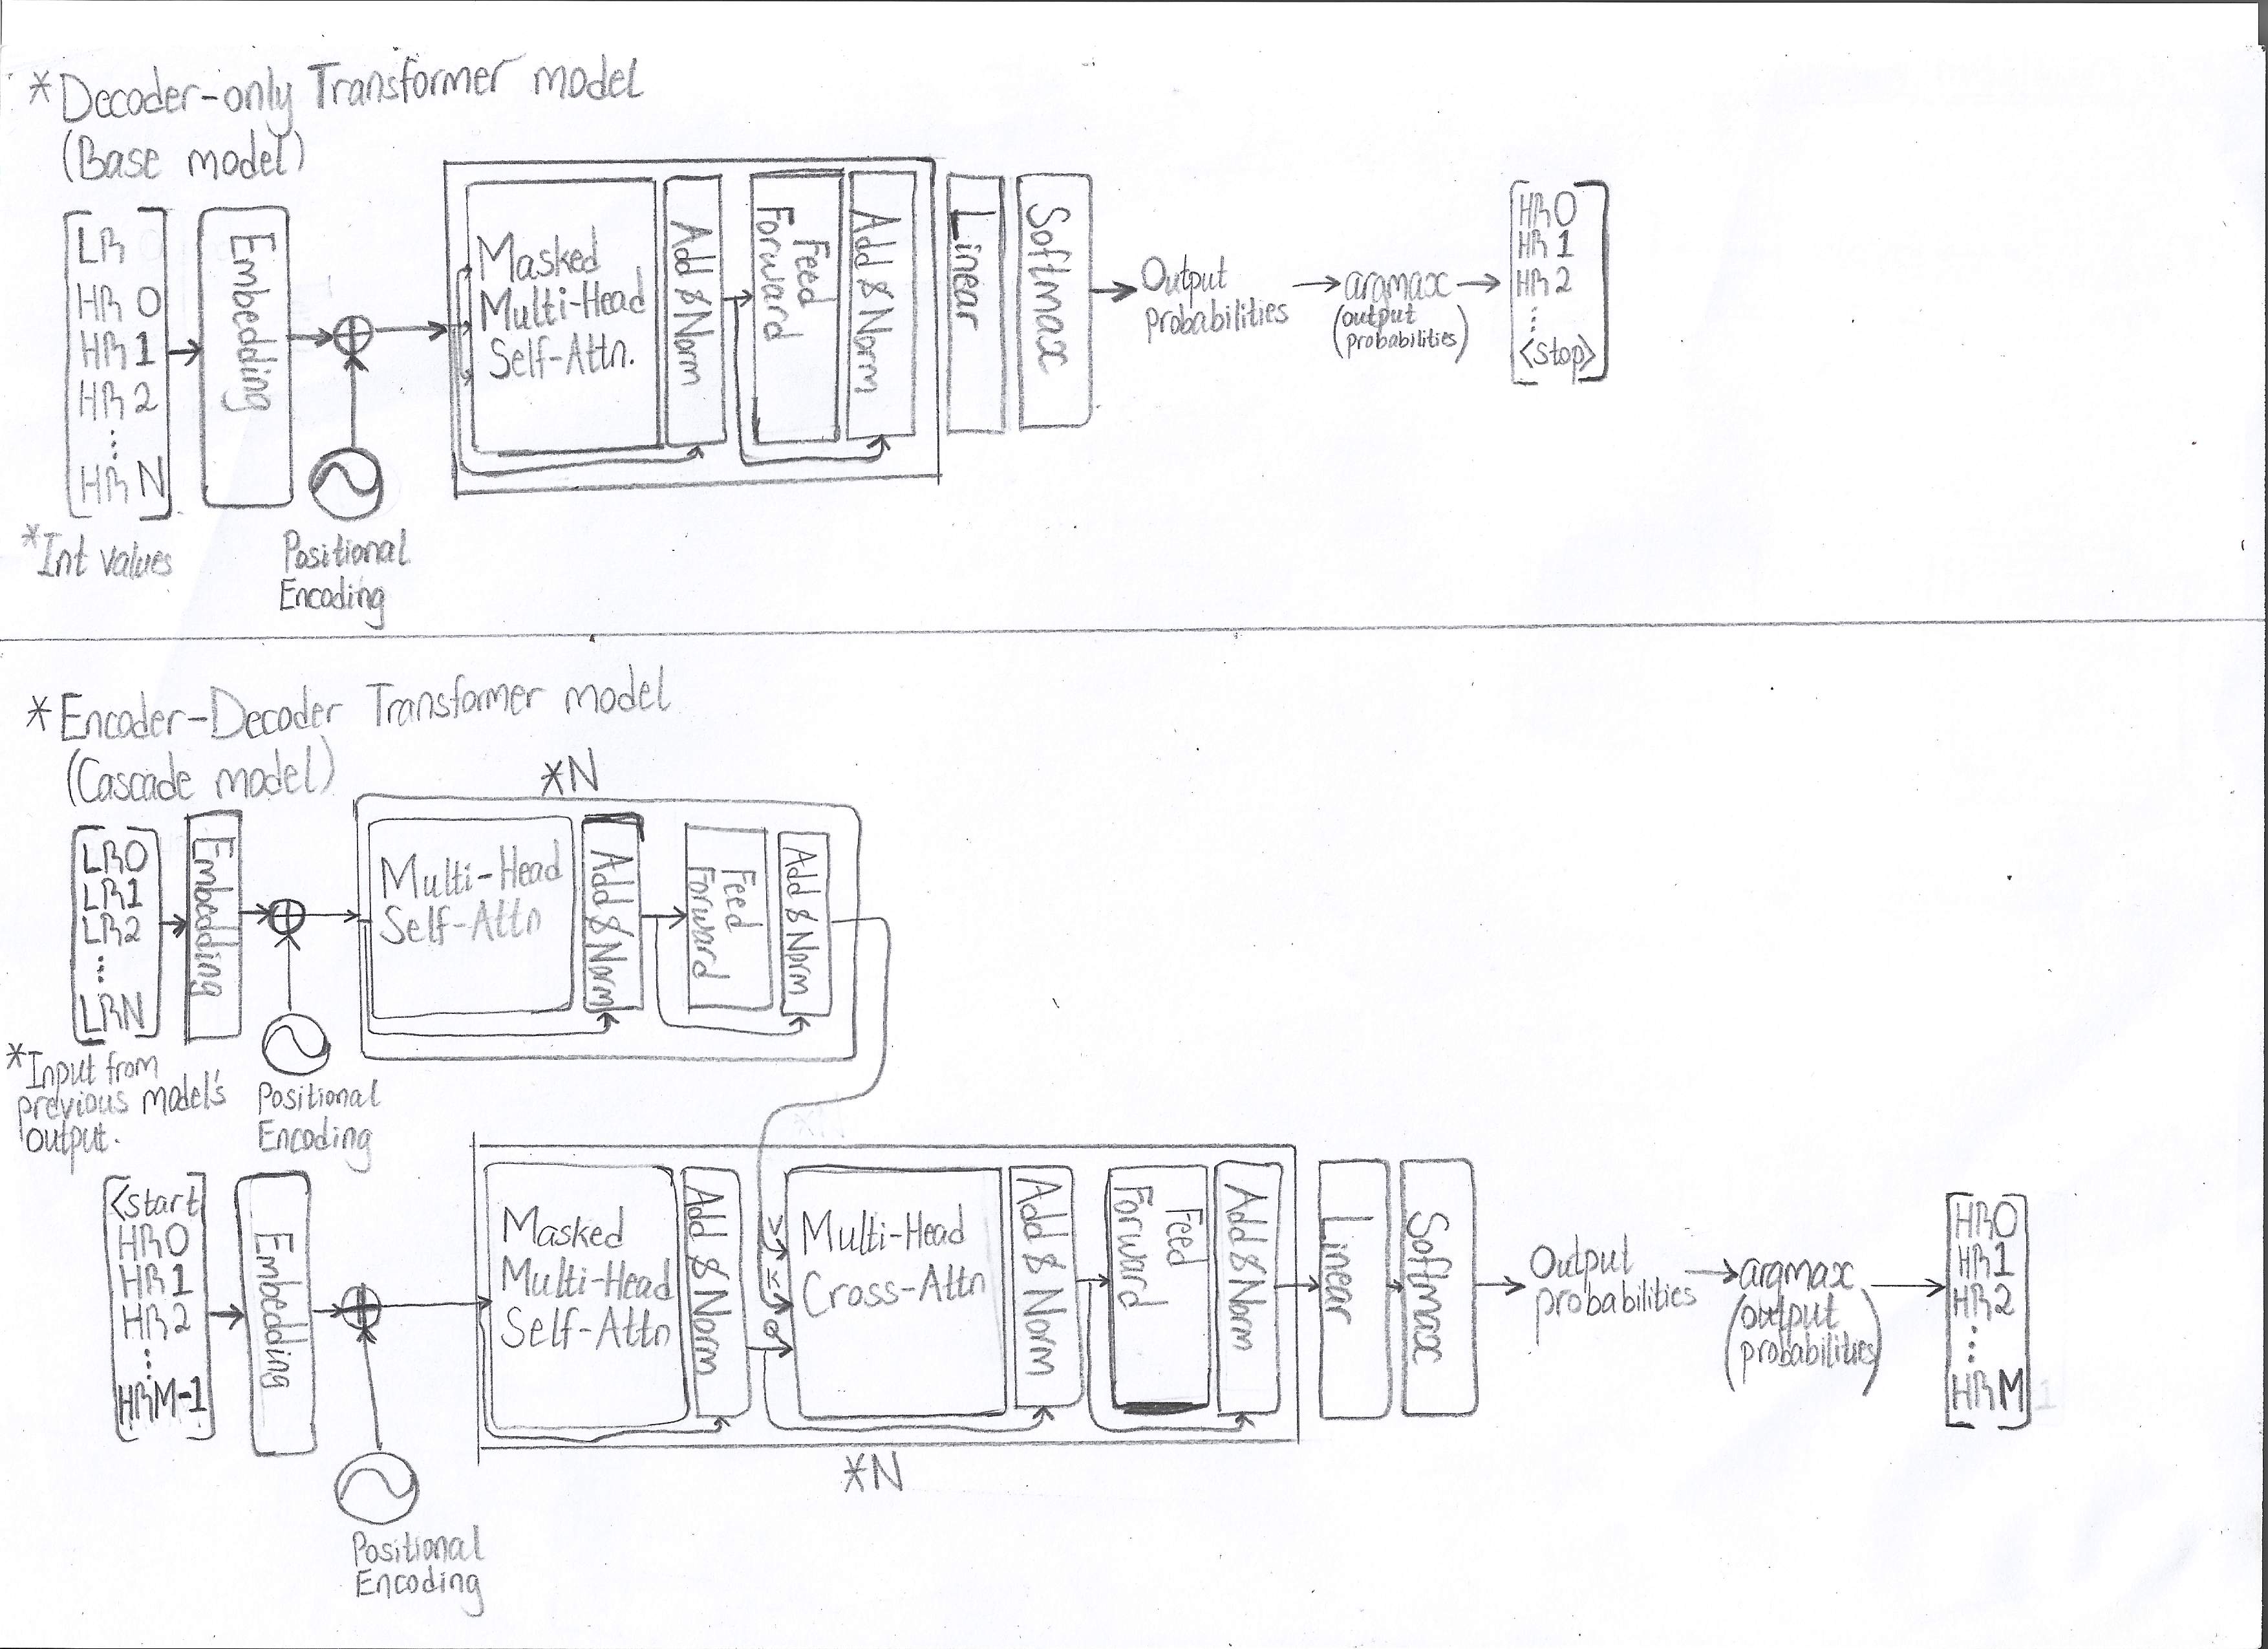 *Decoder-only Transformer model
(Base model)
LR
HR 0
HR 1
HR 2
...
HR N
*Int values
Embedding
Positional
Encoding
Masked
Multi-Head
Self-Attn.
Add & Norm
Feed
Forward
Add & Norm
Linear
Softmax
Output
probabilities
argmax
(output
probabilities)
HR0
HR1
HR2
...
<stop>
*Encoder-Decoder Transformer model
(Cascade model)
*N
LR0
LR1
LR2
...
LRN
*Input from
previous model's
output.
Embedding
Positional
Encoding
Multi-Head
Self-Attn
Add & Norm
Feed
Forward
Add & Norm
<start
HR0
HR1
HR2
...
HRM-1
Embedding
Positional
Encoding
Masked
Multi-Head
Self-Attn
Add & Norm
V
K
Q
Multi-Head
Cross-Attn
Add & Norm
Feed
Forward
Add & Norm
*N
Linear
Softmax
Output
probabilities
argmax
(output
probabilities)
HR0
HR1
HR2
...
HRM